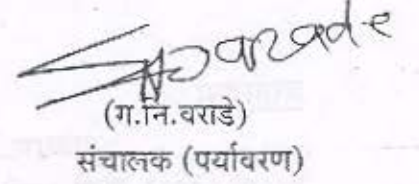 (ग.नि.वराडे)
संचालक (पर्यावरण)